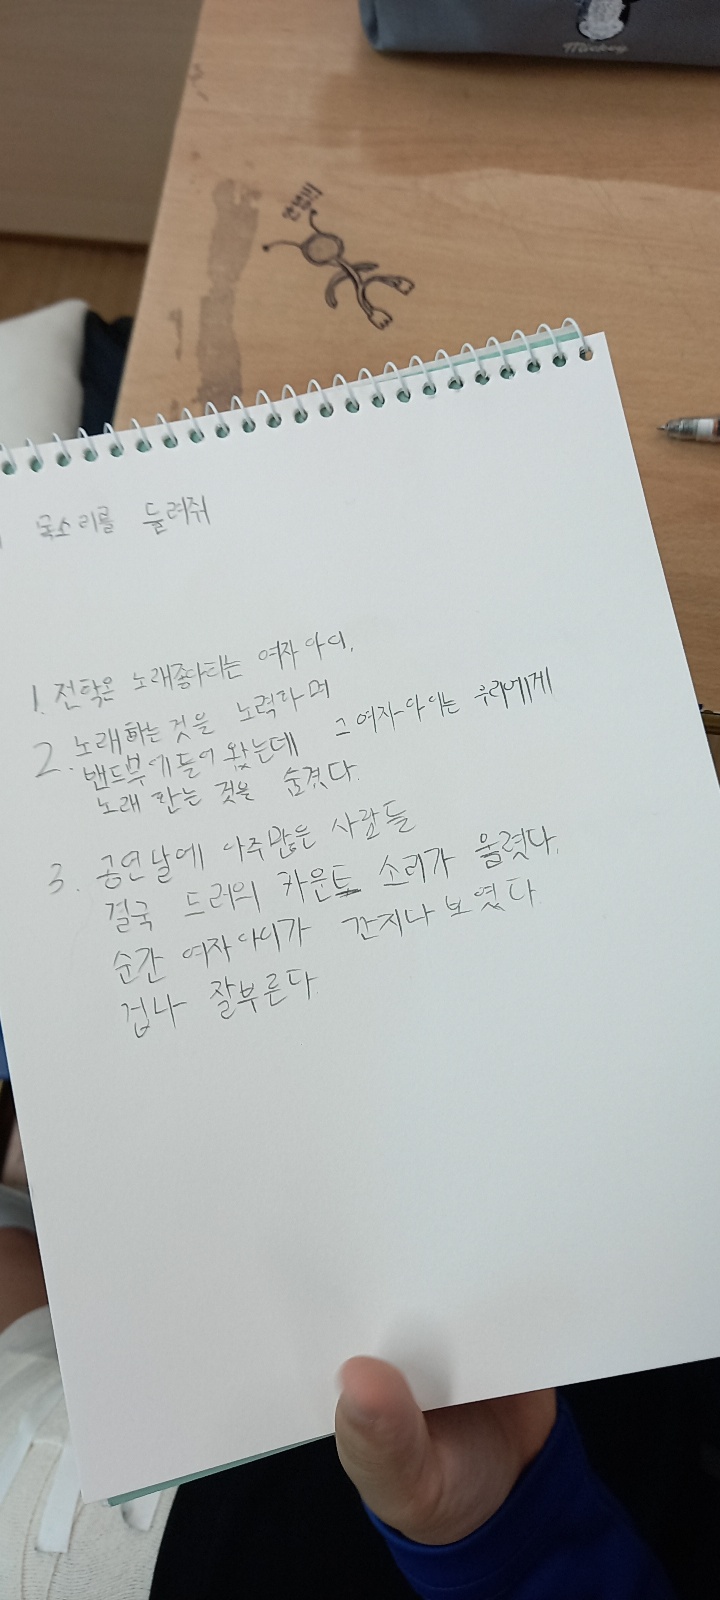 목소리를 들려줘
1. 전학온 노래좋아하는 여자아이.
2. 노래하는 것을 노력하며
밴드부에 들어 왔는데 그 여자아이는 우리에게
노래 하는 것을 숨겼다.
3. 공연날에 아주많은 사람들
결국 드러의 카운트 소리가 울렸다.
순간 여자아이가 간지나 보였다
겁나 잘부른다.